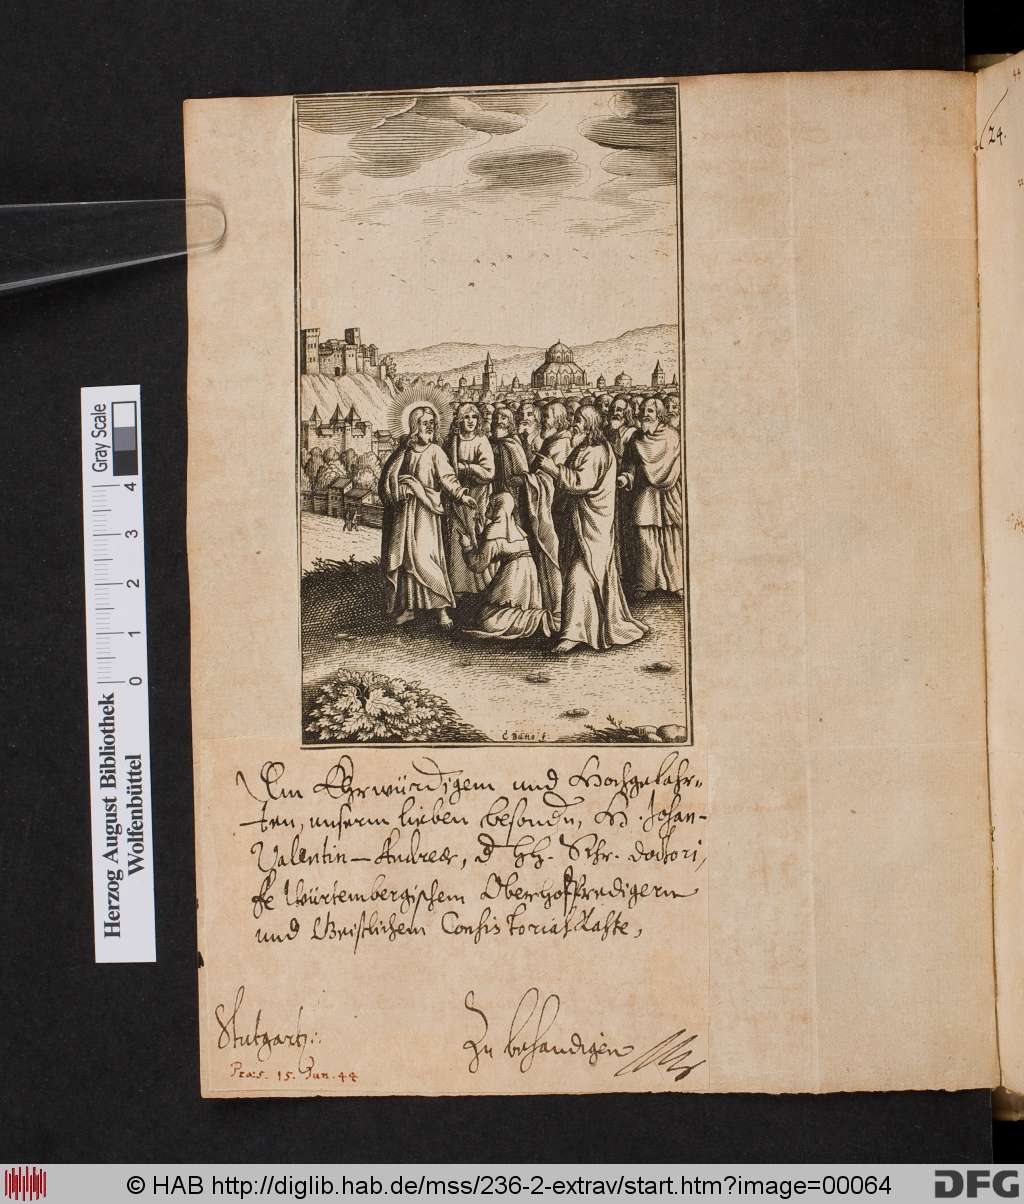 44
24.
C Buno f:
Dem Ehrwürdigem und Hochgelahr-
ten, unserm lieben besondn, H. Johan-
Valentin-Andreæ, d hh. Schr. doctori,
fe Würtembergischem OberHoffPredigern
und Geistlichem ConsistorialRahte,
Stutgartt.
Zu behandigen
Præs. 15. Jun. 44
Herzog August Bibliothek
Wolfenbüttel
Gray Scale
0 1 2 3 4
© HAB http://diglib.hab.de/mss/236-2-extrav/start.htm?image=00064
DFG